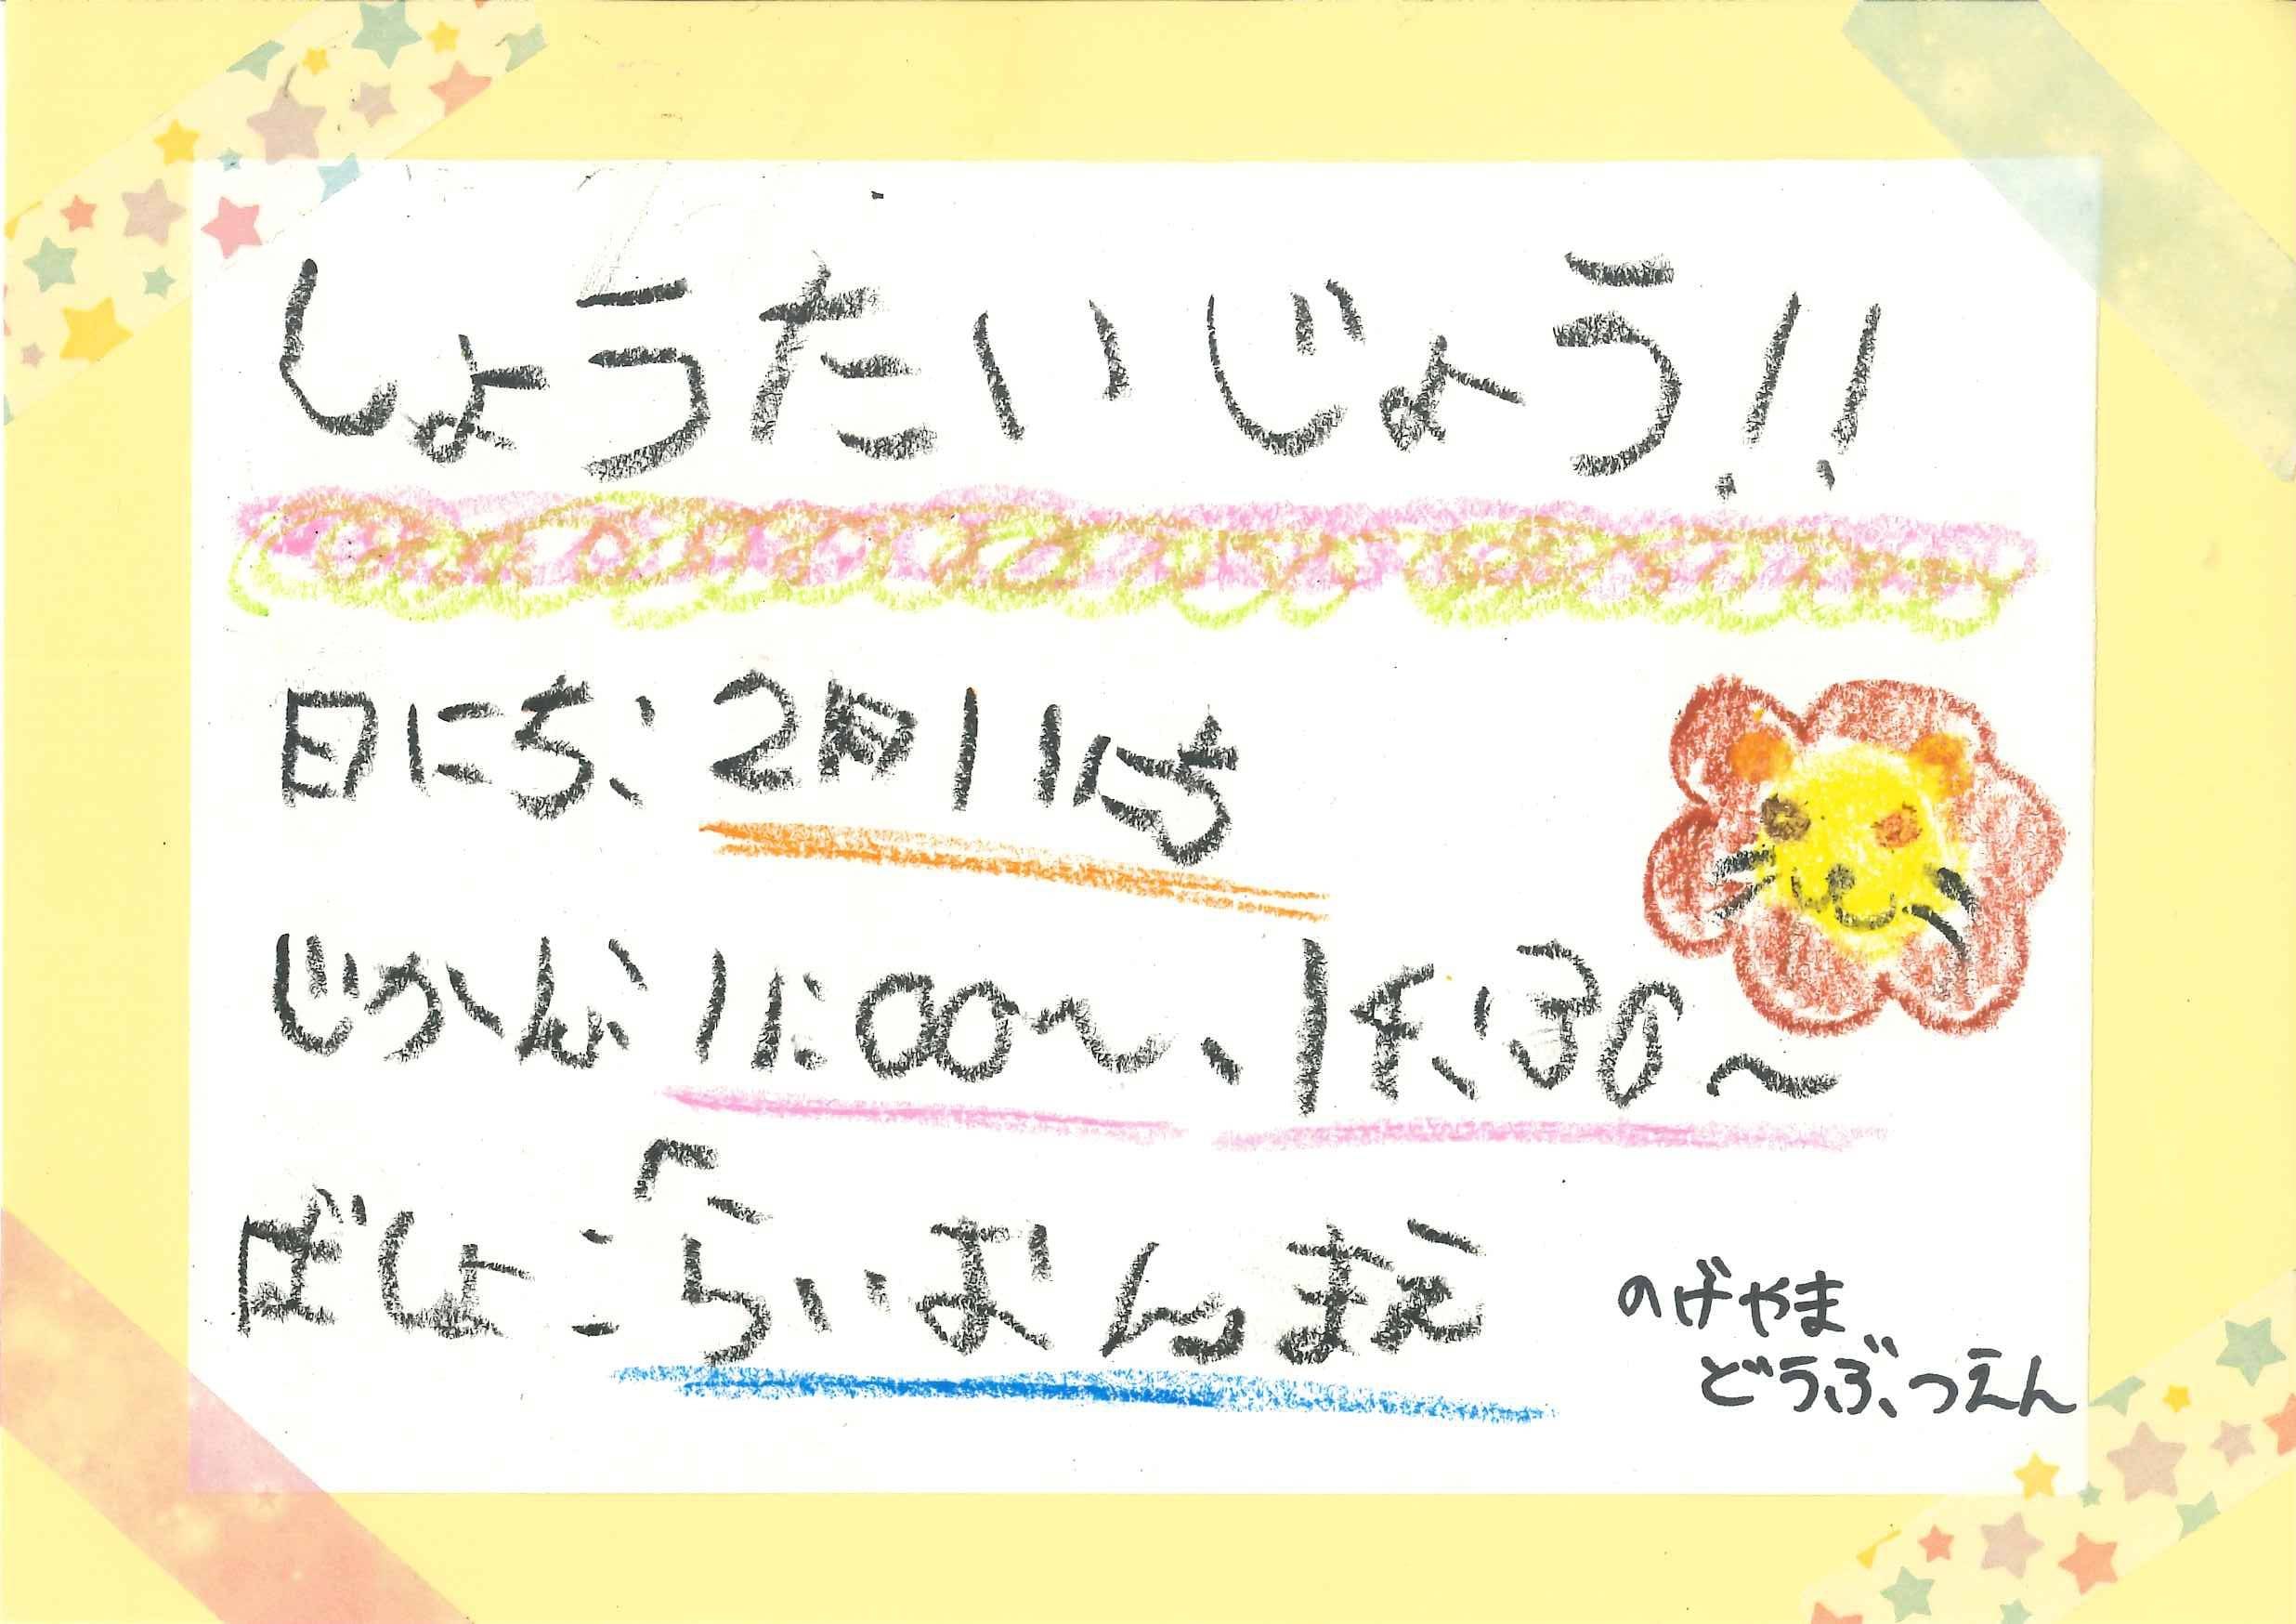 しょうたいじょう!!
日にち: 2月11にち
じかん: 11:00～、
ばしょ: 「らいおんまえ
のげやま
どうぶつえん